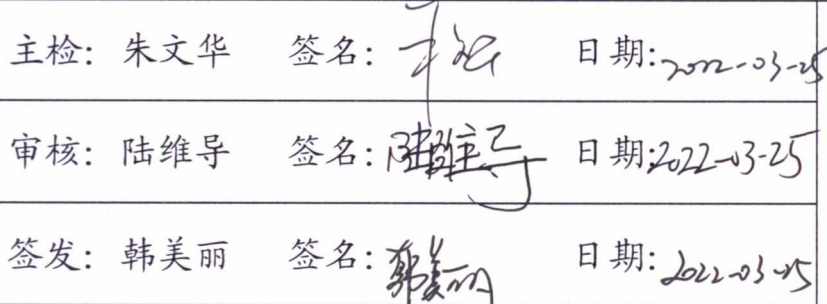 主检：朱文华 签名： 日期：2022-03-25
审核：陆维导 签名：陆维导 日期：2022-03-25
签发：韩美丽 签名：韩美丽 日期：2022-03-25